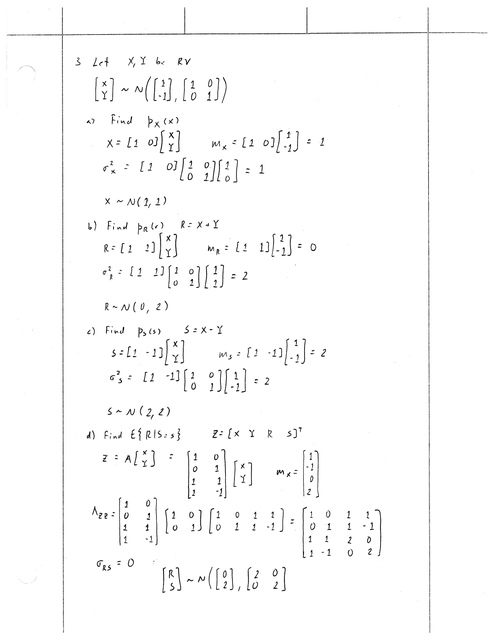 3 Let X, Y be RV
[X Y] ~ N([1 -1], [1 0 0 1])
a) Find p_X(x)
X = [1 0][X Y] m_x = [1 0][1 -1] = 1
σ²_x = [1 0][1 0 0 1][1 0] = 1
X ~ N(1, 1)
b) Find p_R(r) R = X + Y
R = [1 1][X Y] m_R = [1 1][1 -1] = 0
σ²_R = [1 1][1 0 0 1][1 1] = 2
R ~ N(0, 2)
c) Find p_S(s) S = X - Y
S = [1 -1][X Y] m_S = [1 -1][1 -1] = 2
σ²_S = [1 -1][1 0 0 1][1 -1] = 2
S ~ N(2, 2)
d) Find E{R|S=s} Z = [X Y R S]ᵀ
Z = A[X Y] = [1 0 0 1 1 1 1 -1][X Y] m_x = [1 -1 0 2]
Λ_ZZ = [1 0 0 1 1 1 1 -1][1 0 0 1][1 0 1 1 0 1 1 -1] = [1 0 1 1 0 1 1 -1 1 1 2 0 1 -1 0 2]
σ_RS = 0
[R S] ~ N([0 2], [2 0 0 2])